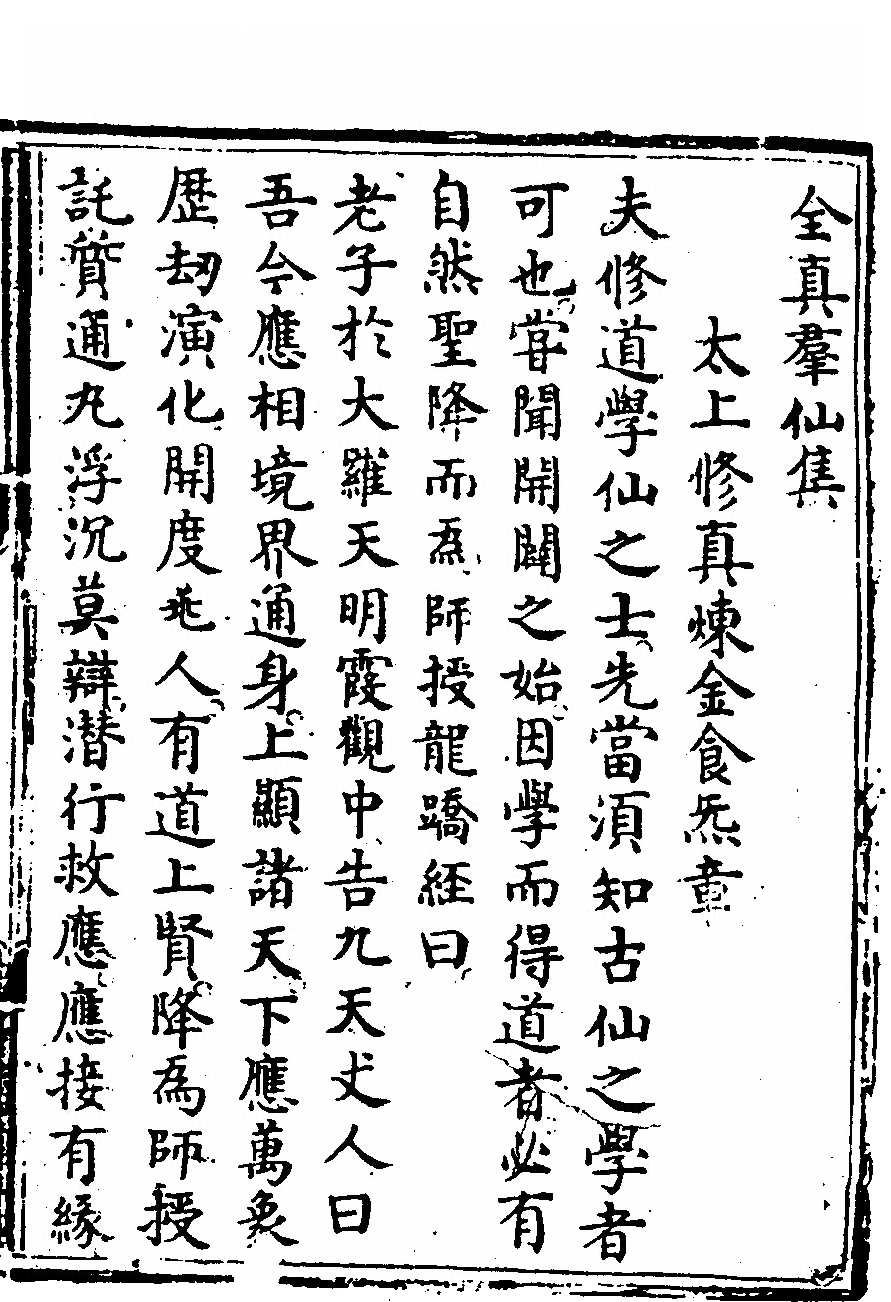 全真羣仙集
太上修真煉金食炁章
夫修道學仙之士先當湏知古仙之學者
可也嘗聞開闢之始因學而得道者必有
自然聖降而為師授龍蹻經曰
老子於大羅天明霞觀中告九天丈人曰
吾今應相境界通身上顯諸天下應萬象
歷劫演化開度兆人有道上賢降為師授
託質通凡浮沉莫辯潛行救應應接有緣